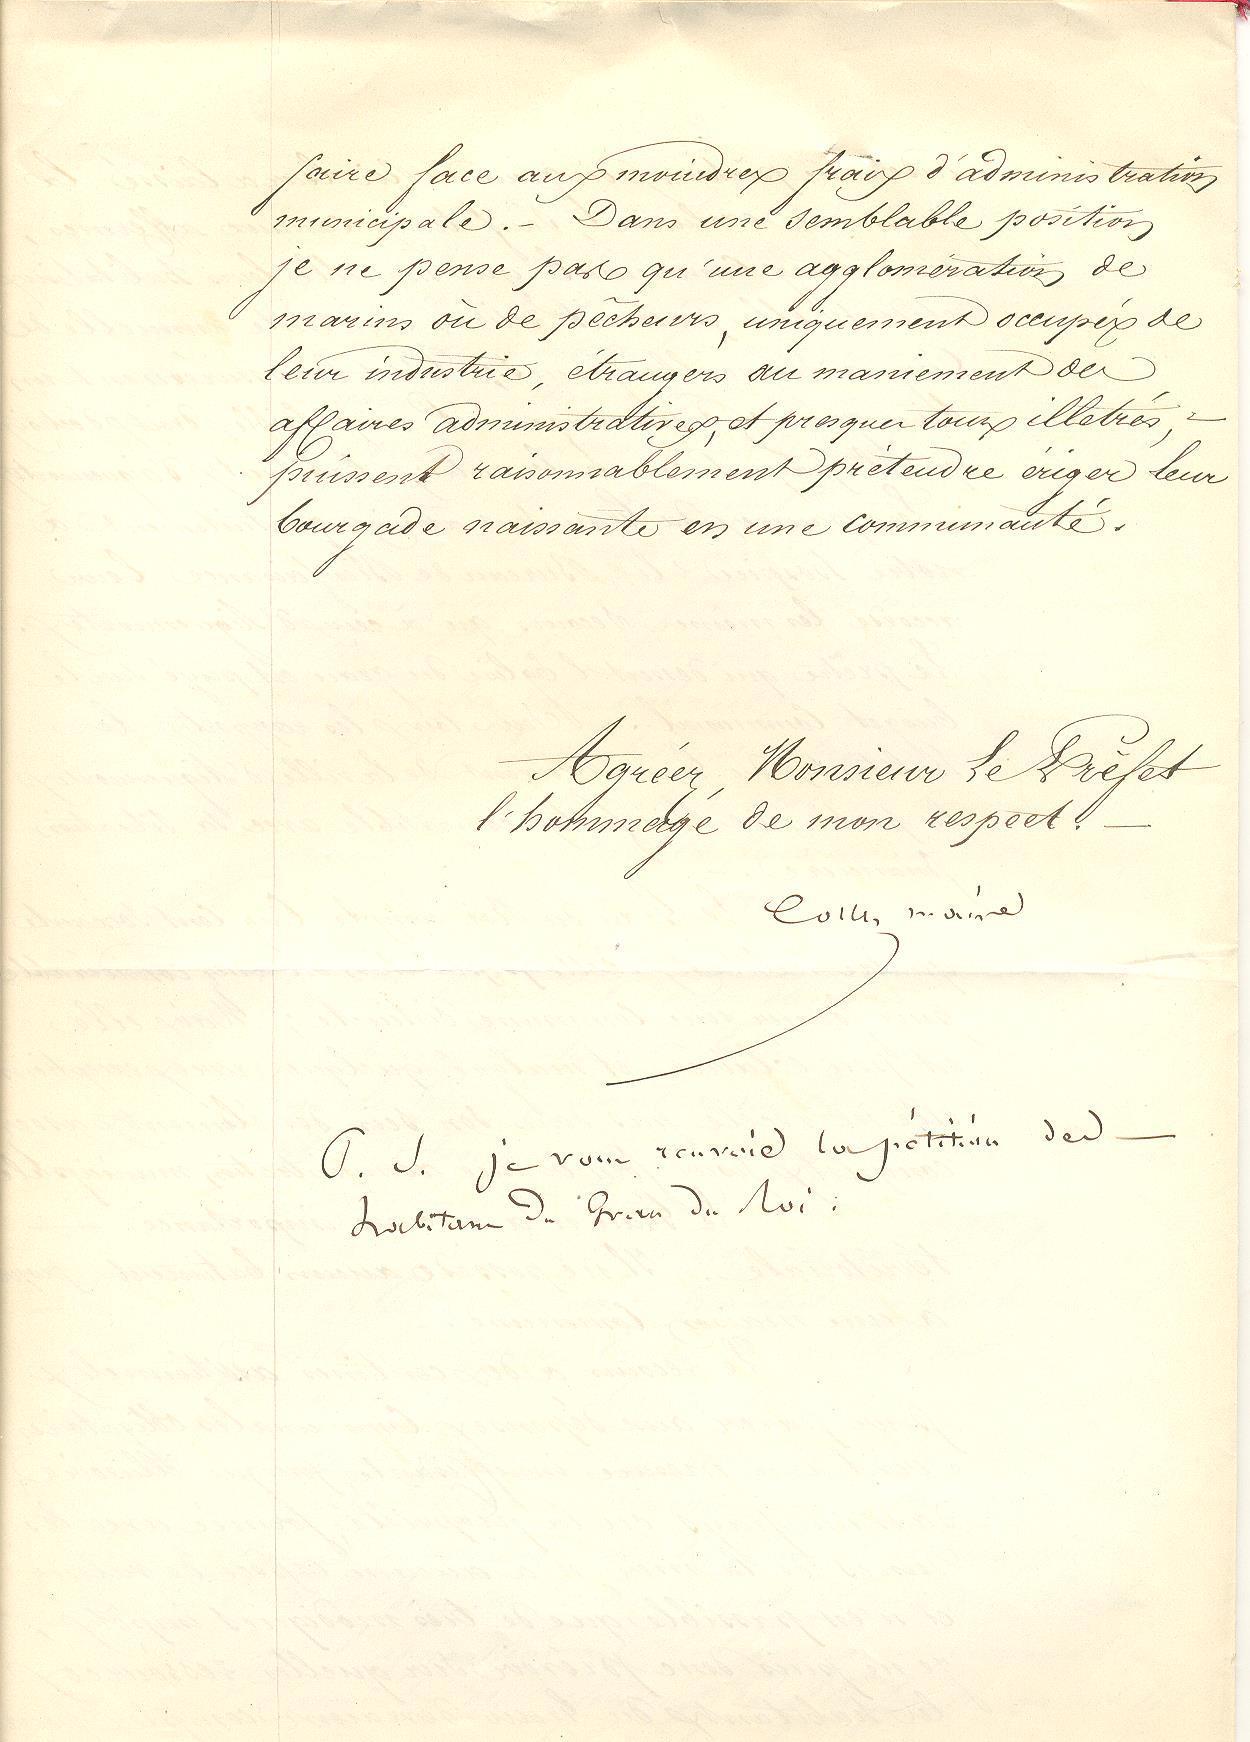 faire face aux moindres frais d'administration
municipale. – Dans une semblable position
je ne pense pas qu'une agglomération de
marins où de pêcheurs, uniquement occupés de
leur industrie, étrangers au maniement des
affaires administratives, et presque tous illetrés, –
puissent raisonnablement prétendre ériger leur
bourgade naissante en une communauté.
Agréer, Monsieur Le Préfet
l'hommage de mon respect. —
maire
P. S. je vous renvoie la pétition des —
habitans du Grau du Roi.